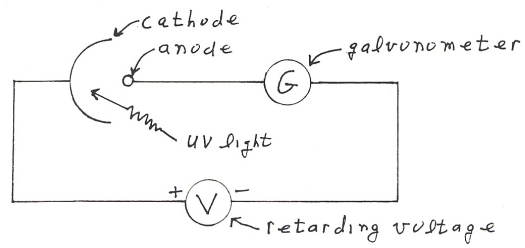 cathode
anode
galvonometer
G
UV light
+ V -
retarding voltage